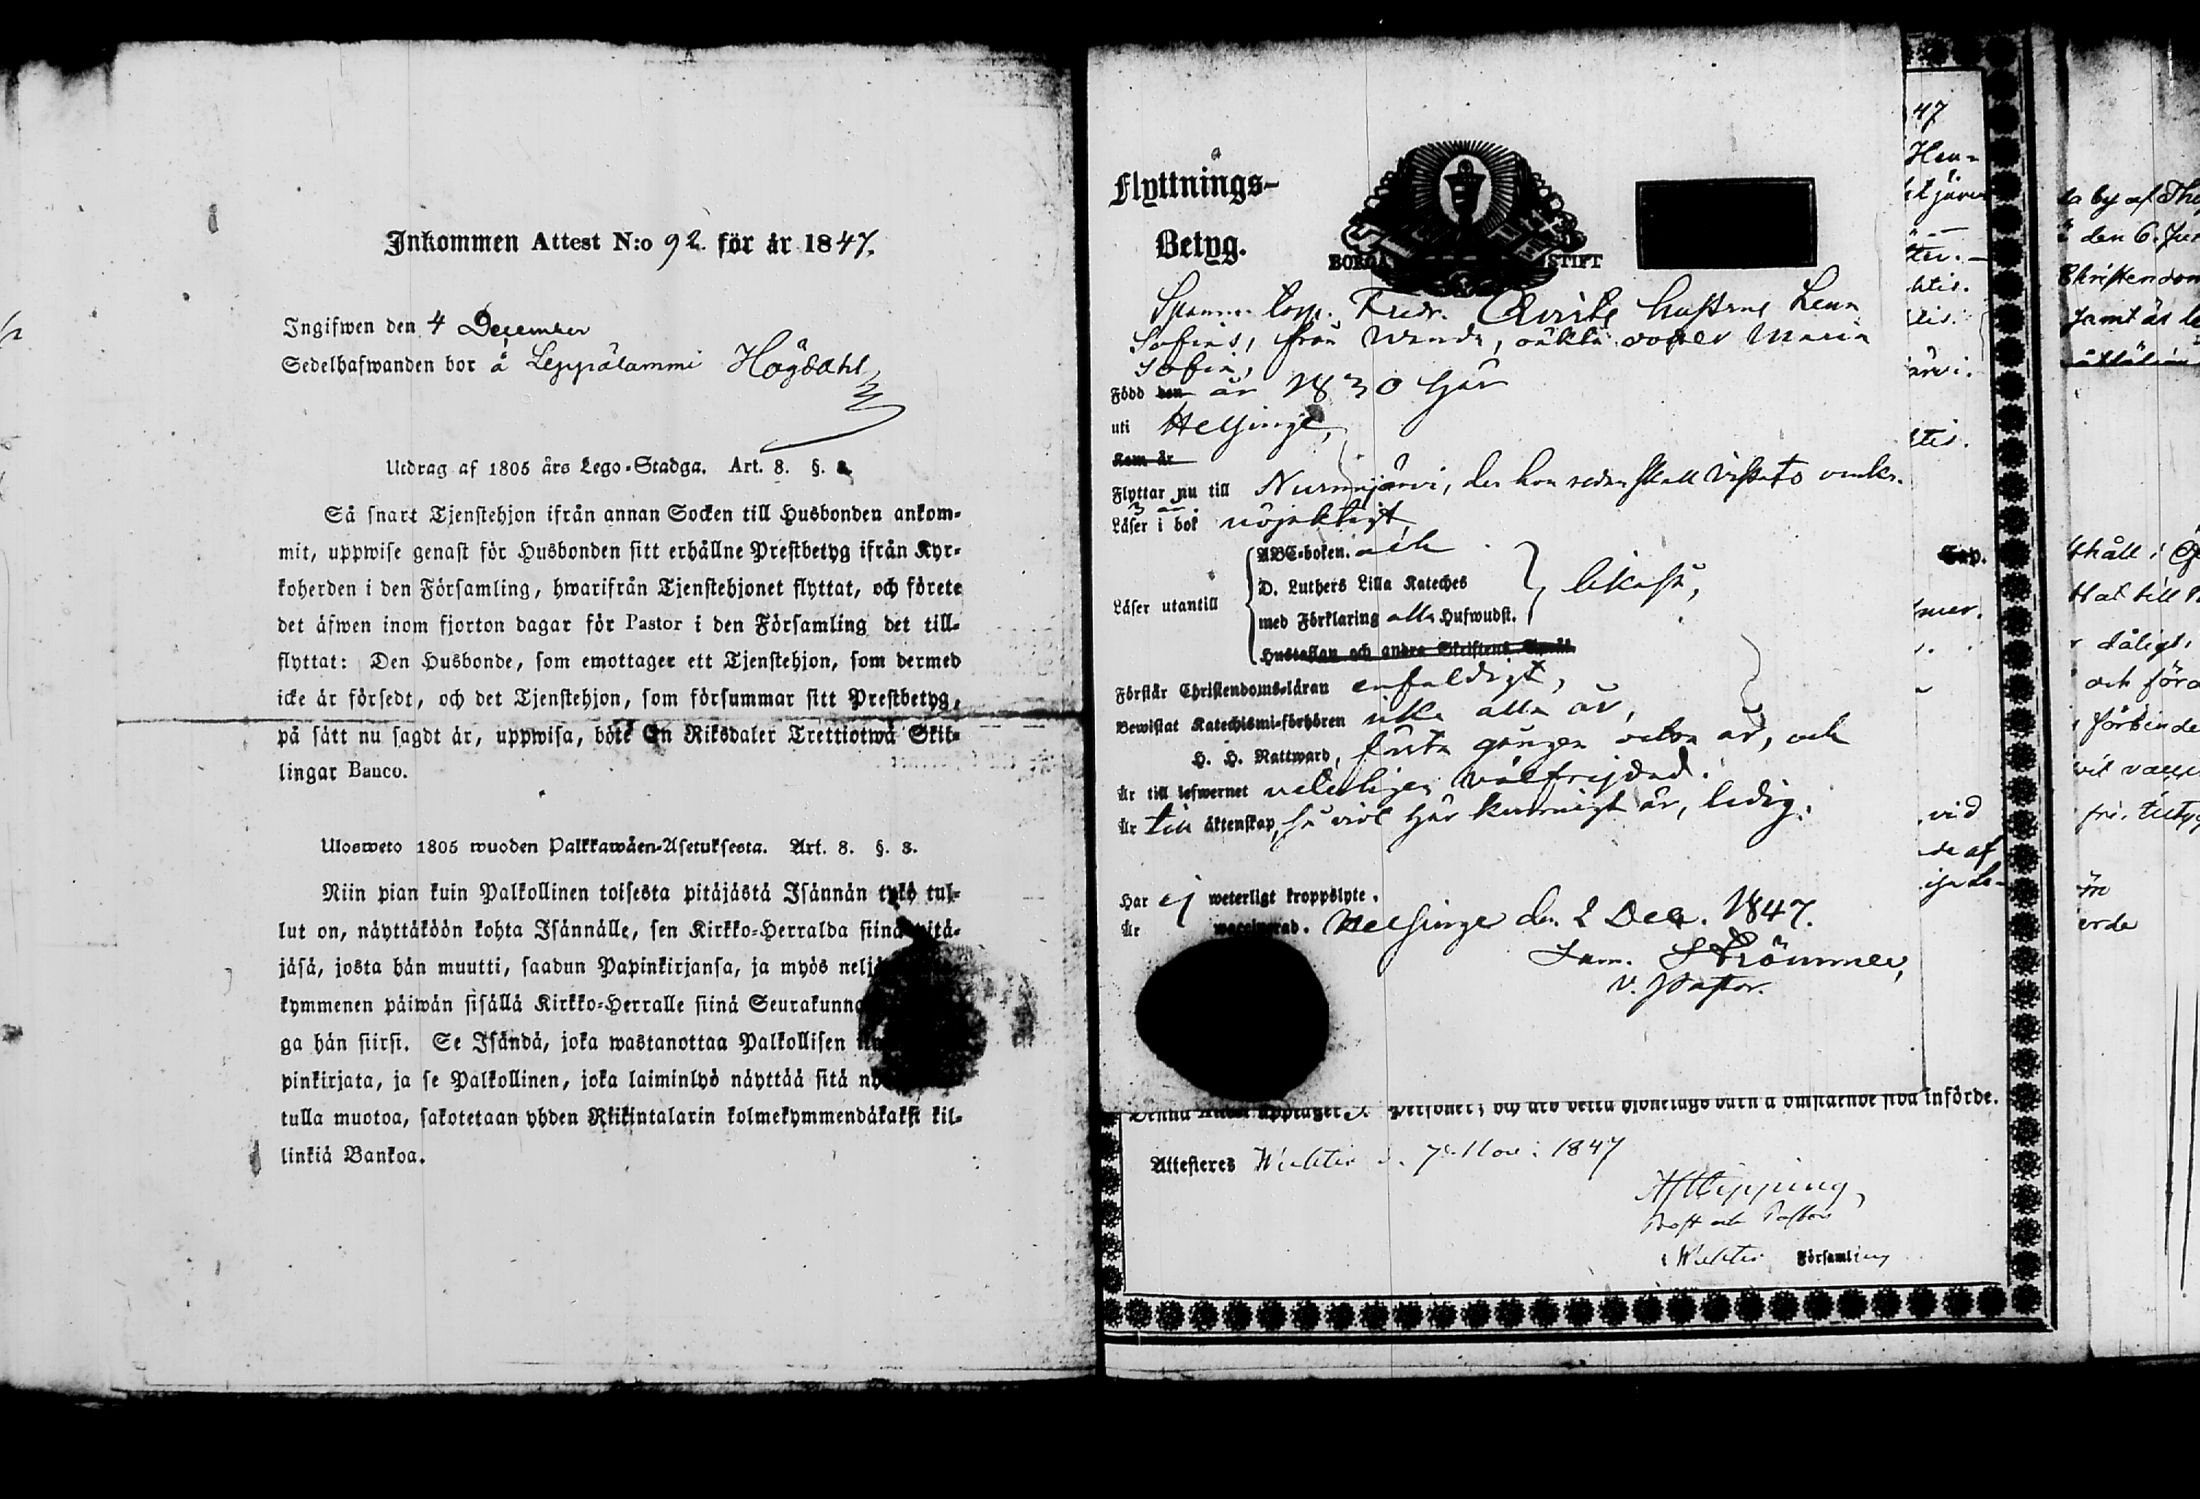 Inkommen Attest N:o 92. för år 1847.
Ingifwen den 4 December
Sedelhafwanden bor å Leppälammi Högdahl
Utdrag af 1805 års Lego-Stadga. Art. 8. §. 8.
Så snart Tjenstehjon ifrån annan Socken till Husbonden ankom-
mit, uppwise genast för Husbonden sitt erhållne Prestbetyg ifrån Kyr-
koherden i den Församling, hwarifrån Tjenstehjonet flyttat, och förete
det äfwen inom fjorton dagar för Pastor i den Församling det till-
flyttat: Den Husbonde, som emottager ett Tjenstehjon, som dermed
icke är försedt, och det Tjenstehjon, som försummar sitt Prestbetyg,
på sätt nu sagdt är, uppwisa, böte En Riksdaler Trettiotwå Skil-
lingar Banco.
Ulosweto 1805 wuoden Palkkawäen-Asetuksesta. Art. 8. §. 8.
Niin pian kuin Palkollinen toisesta pitäjästä Isännän tykö tul-
lut on, näyttäköön kohta Isännälle, sen Kirkko-Herralda siinä pitä-
jäsä, josta hän muutti, saadun Papinkirjansa, ja myös nelj
kymmenen päiwän sisällä Kirkko-Herralle siinä Seurakunna
ga hän siirsi. Se Isändä, joka wastanottaa Palkollisen
pinkirjata, ja se Palkollinen, joka laiminlyö näyttää sitä
tulla muotoa, sakotetaan yhden Riikintalarin kolmekymmendäkaksi kil-
linkiä Bankoa.
Flyttnings-
Betyg.
BORGÅ STIFT
Fredr. Qvists hustrus Lena
Sofias, från Wanda, oäkta dotter Maria
Sofia,
Född den år 1830 här
uti Helsinge,
Kom år
Flyttar nu till Nurmijärvi, der hon redan skall vistats omkr.
3 år.
Läser i bok nöjaktigt
Läser utantill
ABC-boken. och
D. Luthers Lilla Kateches
med Förklaring alla Hufwudst.
likaså,
Hustaflan och andra Skriftens Språk.
Förstår Christendoms-läran enfaldigt,
Bewistat Katechismi-förhören icke alla år,
H. H. Nattward, sista gången detta år, och
Är till lefwernet veterligen välfrejdad.
Är till äktenskap, så vidt här kunnigt är, ledig.
Har ej weterligt kroppslyte.
Är waccinerad. Helsinge den 2 Dec. 1847.
Sam. Strömmer,
V. Pastor.
personer; och äro detta hjonelags barn å omstående sida införde.
Attesteres Wichtis d. 7 Nov: 1847
Prost och Pastor
i Wichtis Församling
47
Cap.
vid
de af
la by af
den 6.
Christendom
dåligt
och
förbinde